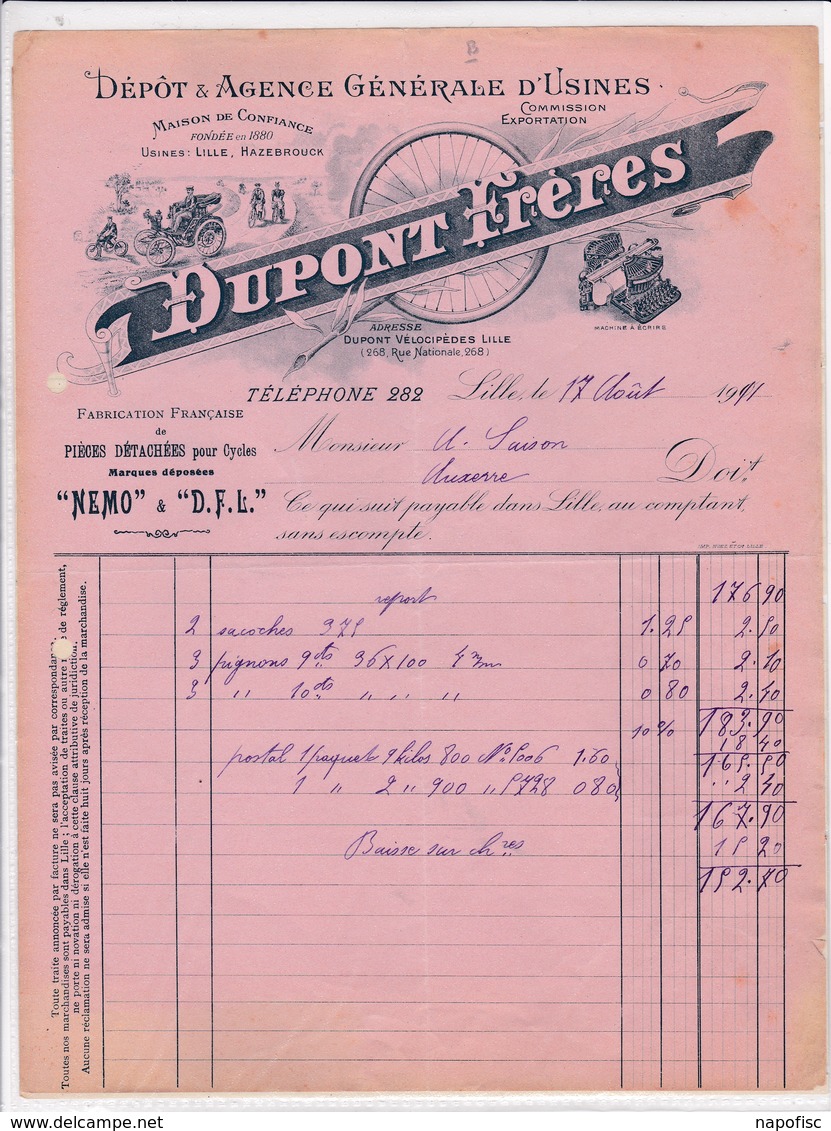 B
DÉPÔT & AGENCE GÉNÉRALE D'USINES
MAISON DE CONFIANCE
FONDÉE en 1880
USINES: LILLE, HAZEBROUCK
COMMISSION
EXPORTATION
DUPONT Frères
MACHINE A ÉCRIRE
ADRESSE
DUPONT VÉLOCIPÈDES LILLE
(268, Rue Nationale, 268)
TÉLÉPHONE 282
Lille, le 17 Août 1911
FABRICATION FRANÇAISE
de
PIÈCES DÉTACHÉES pour Cycles
Marques déposées
"NEMO" & "D.F.L."
Monsieur A. Saison
Auxerre Doit
Ce qui suit payable dans Lille, au comptant,
sans escompte.
report 176 90
2 sacoches 375 1.25 2.50
3 pignons 9 dts 36 X 100 4 mm 0 70 2.10
3 " 10 dts " " " " 0 80 2.40
183.90
10 % 18 40
165.50
postal 1 paquet 9 kilos 800 No 5006 1.60
1 " 2 " 900 " 5728 0 80 " 2 40
167.90
Baisse sur chres 15 20
152.70
Toute traite annoncée par facture ne sera pas avisée par correspondan
Toutes nos marchandises sont payables dans Lille; l'acceptation de traites ou autre de réglement,
ne porte ni novation ni dérogation à cette clause attributive de juridiction.
Aucune réclamation ne sera admise si elle n'est faite huit jours après réception de la marchandise.
napofisc